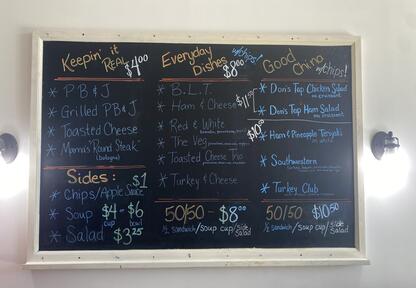 Keepin' it
REAL $4.00
* PB & J
* Grilled PB & J
* Toasted Cheese
* Mama's "Round Steak"
(bologna)
Sides:
* Chips/Apple Sauce $1
* Soup $4 - $6
cup bowl
* Salad $3.25
Everyday w/chips!
Dishes $8.00
* B.L.T.
* Ham & Cheese
* Red & White
* The Veg
* Toasted Cheese Trio
* Turkey & Cheese
50/50 - $8.00
1/2 sandwich/soup cup/side salad
Good
w/chips!
* Don's Top Chicken Salad
on croissant
* Don's Top Ham Salad
on croissant
$10.00
* Ham & Pineapple Teriyaki
on white
* Southwestern
* Turkey Club
50/50 $10.50
1/2 sandwich/soup cup/side salad